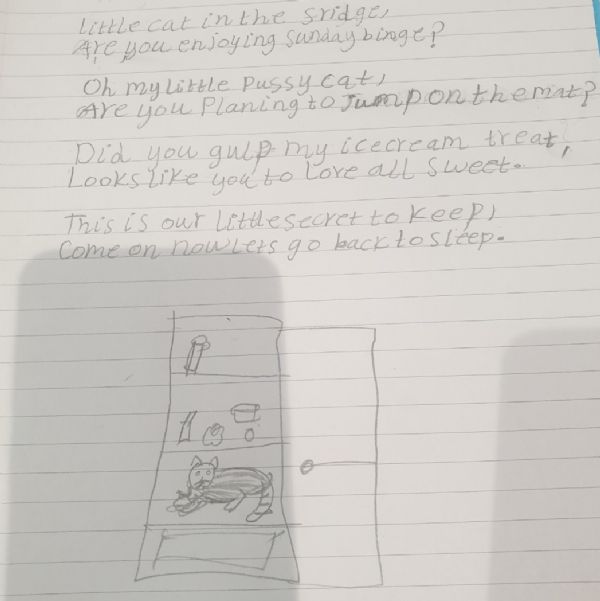 Little cat in the sridge,
Are you enjoying Sunday binge?
Oh my little pussy cat,
Are you Planing to Jump on the mat?
Did you gulp my icecream treat,
Looks like you to Love all sweet.
This is our little secret to keep,
Come on now Lets go back to sleep.